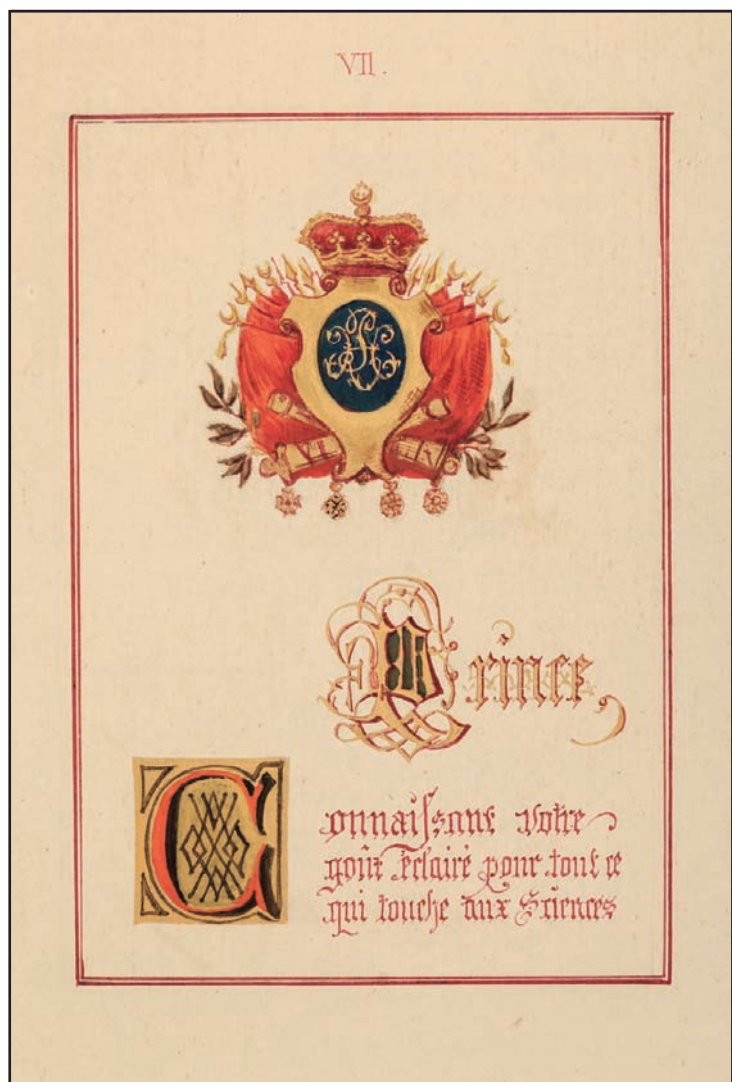 VII.
Prince,
Connaissant votre
goût éclairé pour tout ce
qui touche aux Sciences